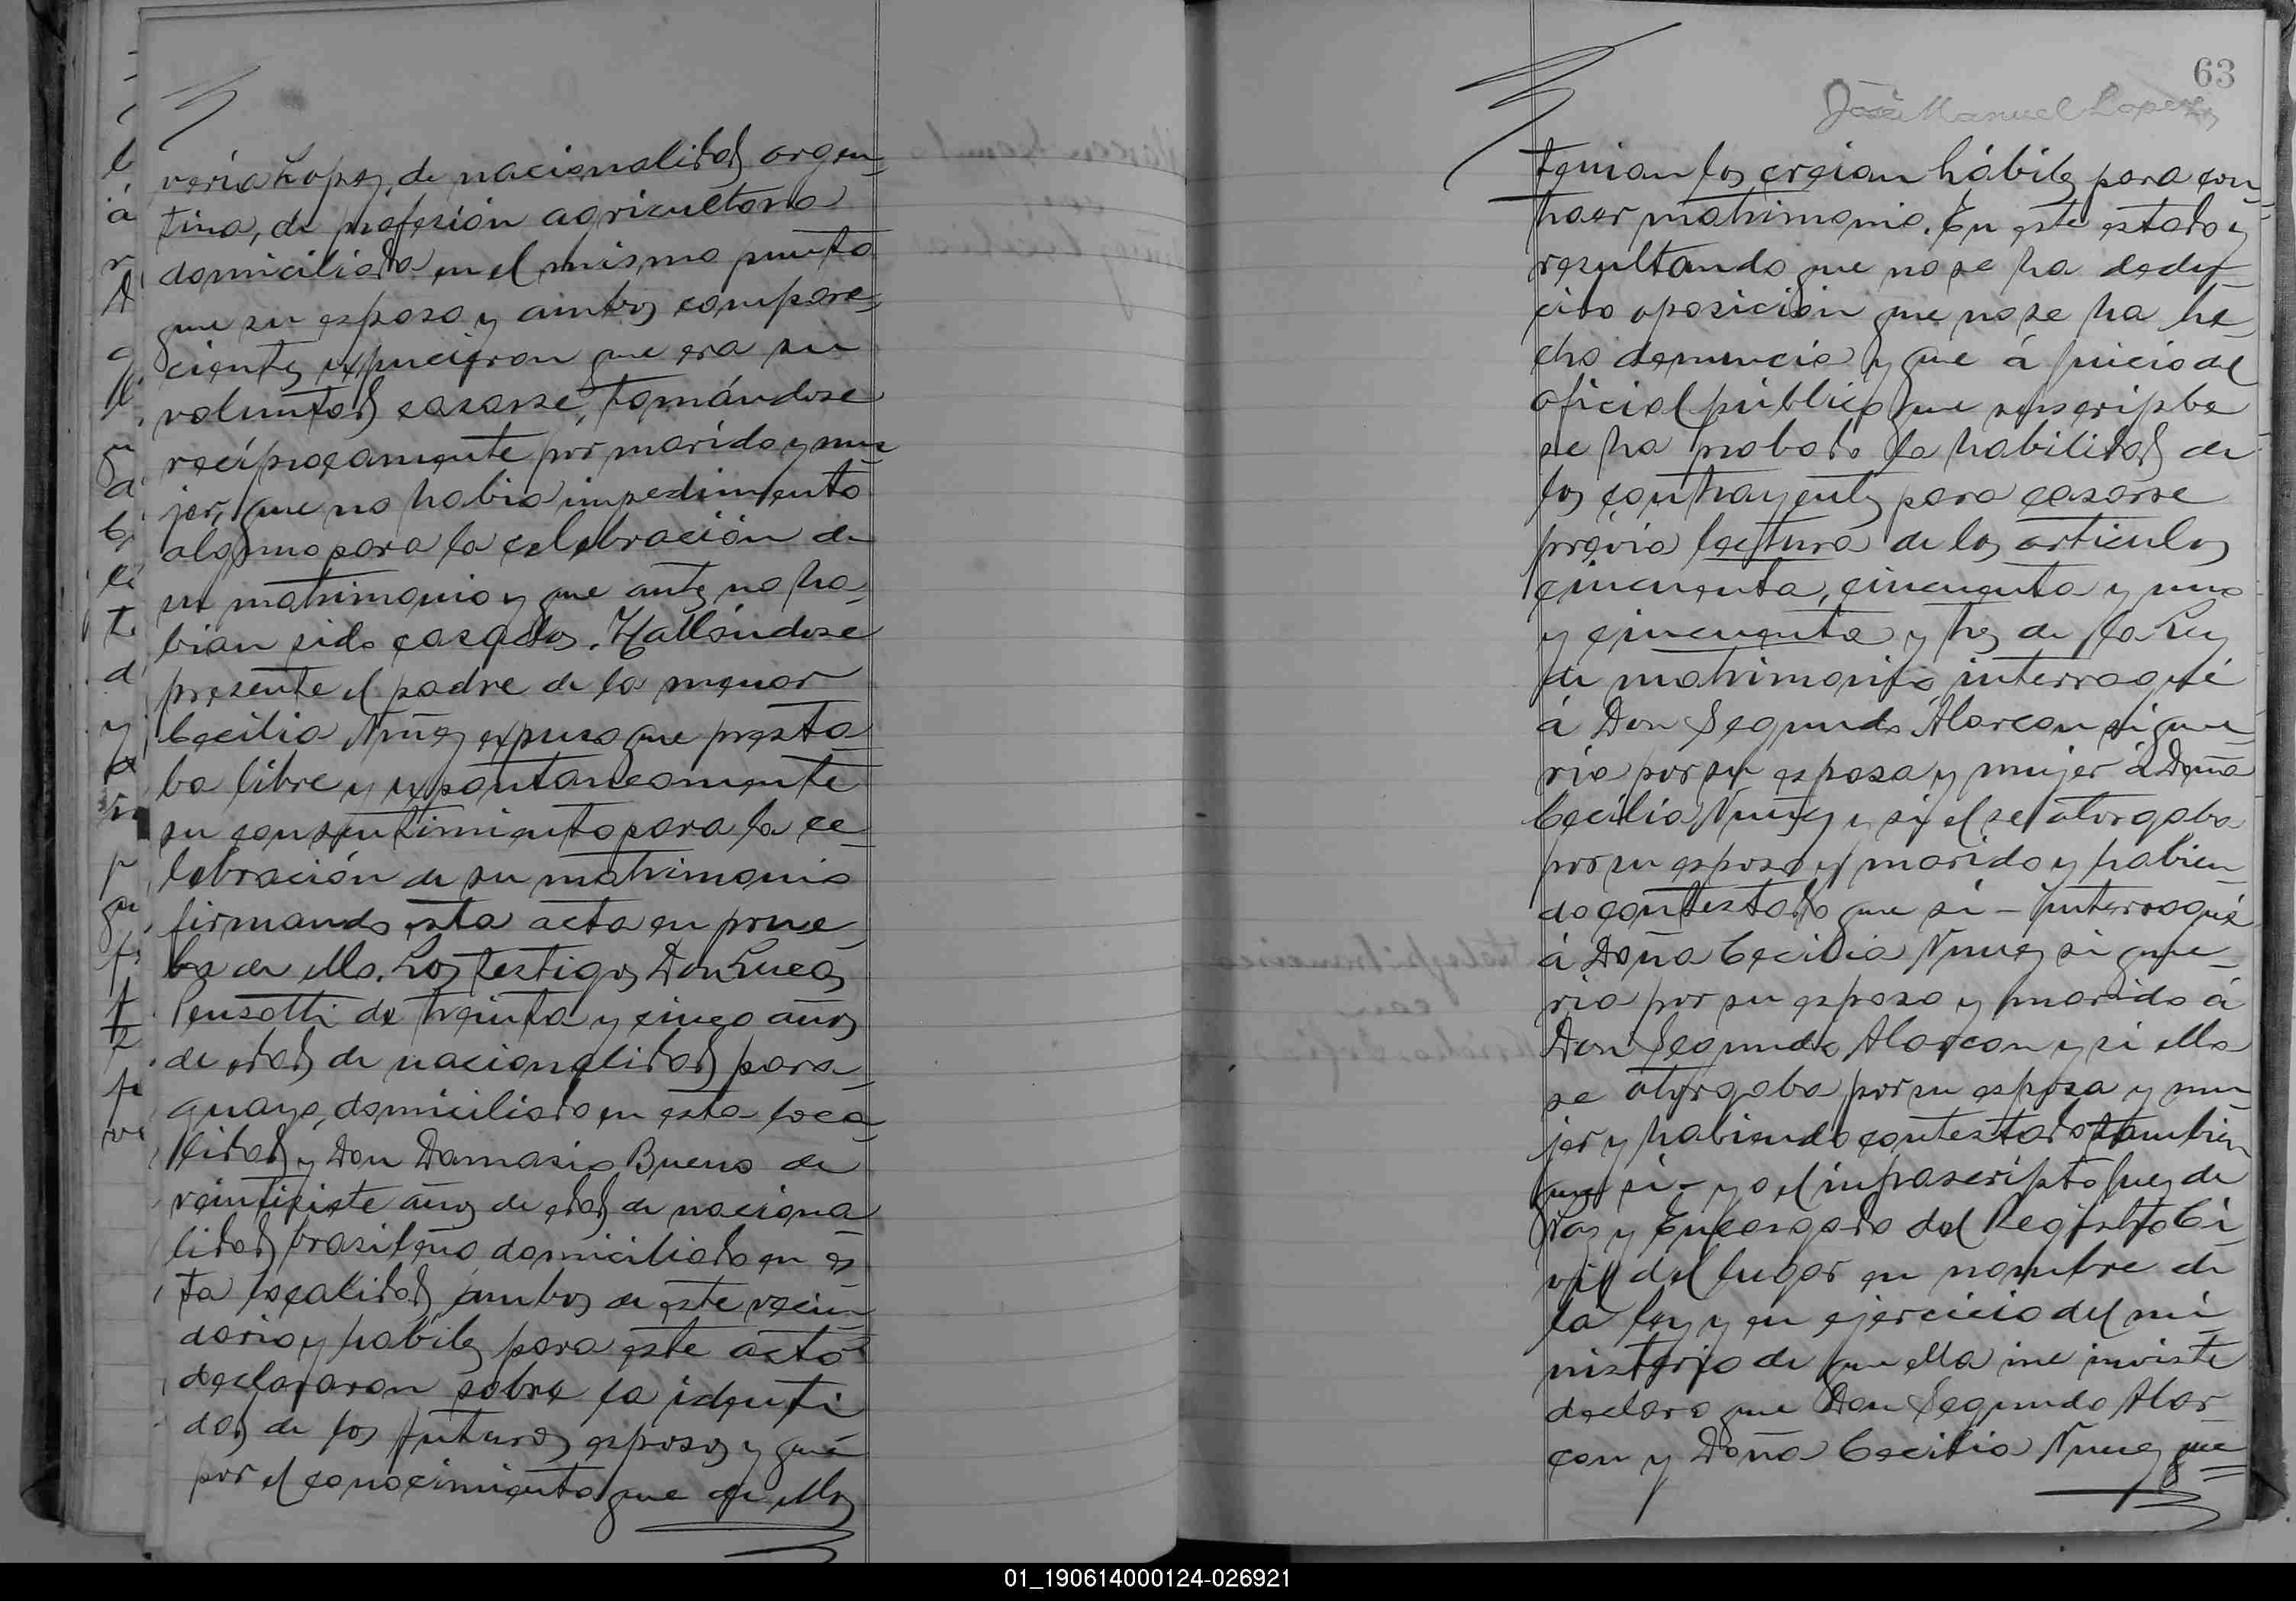 veria Lopez, de nacionalidad argen-
tina, de profesión agricultora
domiciliada en el mismo punto
que su esposo y ambos compare-
cientes expucieron que era su
voluntad casarse, tomándose
recíprocamente por marido y mu-
jer, que no habia impedimento
alguno para la celebración de
su matrimonio y que antes no ha-
bian sido casados. Hallándose
presente el padre de la menor
Cecilia Nuñez expuso que presta-
ba libre y espontaneamente
su consentimiento para la ce-
lebración de su matrimonio
firmando esta acta en prue-
ba de ello. Los testigos Don Lucas
Pensotti de treinta y cinco años
de edad de nacionalidad para-
guaya, domiciliado en esta loca-
lidad y Don Damasio Bueno de
veintisiete años de edad de naciona
lidad brasileña domiciliado en es-
ta localidad, ambos de este vecin-
dario y habiles para este acto
declararon sobre la identi
dad de los futuros esposos y que
por el conocimiento que de ellos
63
José Manuel Lopez
tenian los creian hábiles para con-
traer matrimonio. En este estado y
resultando que no se ha dedu-
cido oposición que no se ha he-
cho denuncia y que á juicio del
oficial público que suscripbe
se ha probado la habilidad de
los contrayentes para casarse
prévia lectura de los articulos
cincuenta, cincuenta y uno
y cincuenta y tres de la Ley
de matrimonio interrogué
á Don Segundo Alarcon si que-
ria por su esposa y mujer á Doña
Cecilia Nuñez y si el se otorgaba
por su esposo y marido y habien-
do contestado que si - interrogué
á Doña Cecilia Nuñez si que-
ria por su esposo y marido á
Don Segundo Alarcon y si ella
se otorgaba por su esposa y mu-
jer y habiendo contestado tambien
que si - yo el infrascripto Juez de
Paz y Encargado del Registro Ci-
vil del lugar en nombre de
la ley y en ejercicio del mi-
nisterio de que ella me inviste
declaro que Don Segundo Alar-
con y Doña Cecilia Nuñez que
01_190614000124-026921